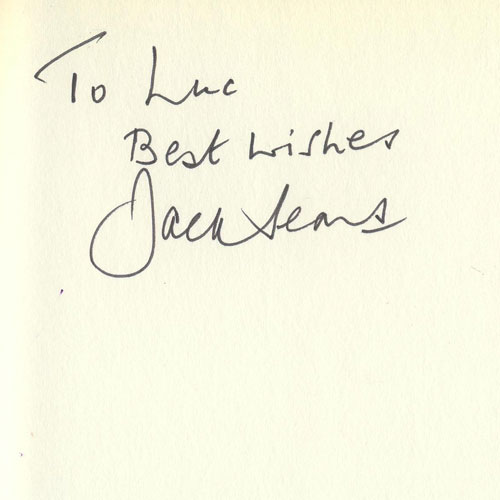 To Luc
Best wishes
Jack Sears